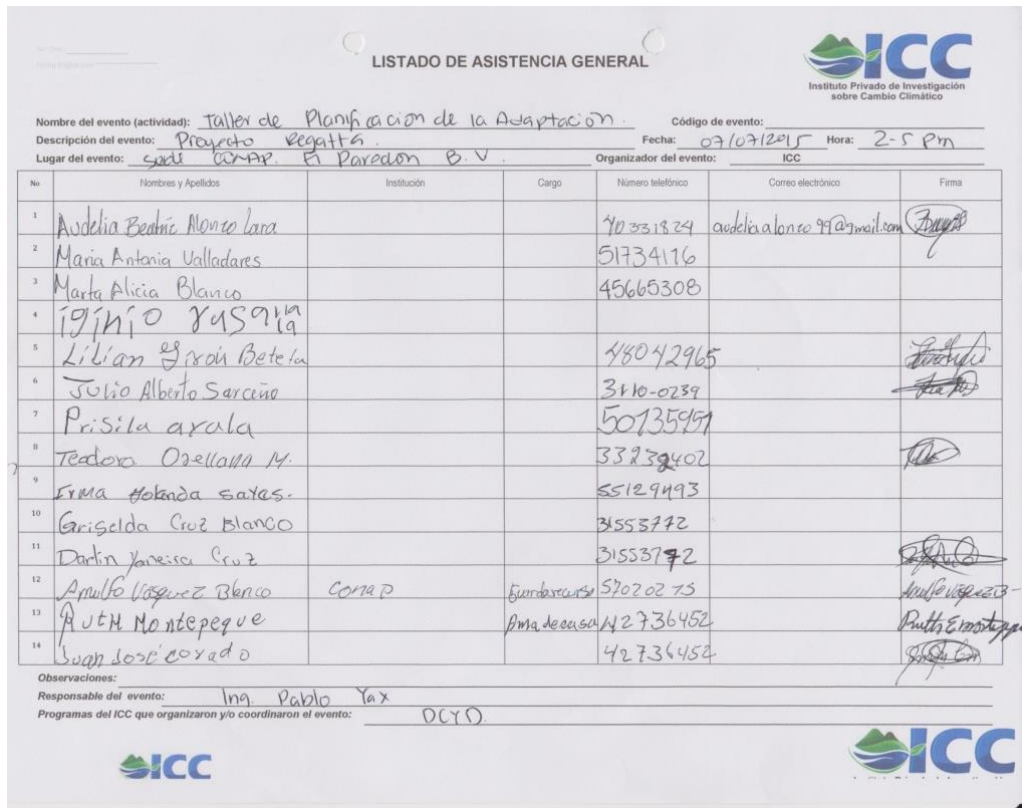 LISTADO DE ASISTENCIA GENERAL
ICC
Instituto Privado de Investigación
sobre Cambio Climático
Nombre del evento (actividad): Taller de Planificacion de la Adaptación. Código de evento:
Descripción del evento: Proyecto Regatta. Fecha: 07/07/2015 Hora: 2-5 pm
Lugar del evento: sede CONAP. El Paredon B.V. Organizador del evento: ICC
No Nombres y Apellidos Institución Cargo Número telefónico Correo electrónico Firma
1 Audelia Beatriz Alonzo Lara 40331824 audeliaalonzo99@gmail.com
2 Maria Antonia Valladares 51734116
3 Marta Alicia Blanco 45665308
4 iginio
5 Lilian Girón Beteta 48042965
6 Julio Alberto Sarceño 3110-0239
7 Prisila arala 50735951
8 Teodoro Orellana M. 33232402
9 Irma Yolanda sayas. 55129493
10 Griselda Cruz Blanco 31553772
11 Darlin Yaneira Cruz 31553772
12 Arnulfo Vásquez Blanco conap Guardarecurso 57020275 Arnulfo Vásquez B-
13 Ruth Montepeque Ama de casa 42736452
14 Juan José corado 42736452
Observaciones:
Responsable del evento: Ing. Pablo Yax
Programas del ICC que organizaron y/o coordinaron el evento: DCYD.
ICC
ICC